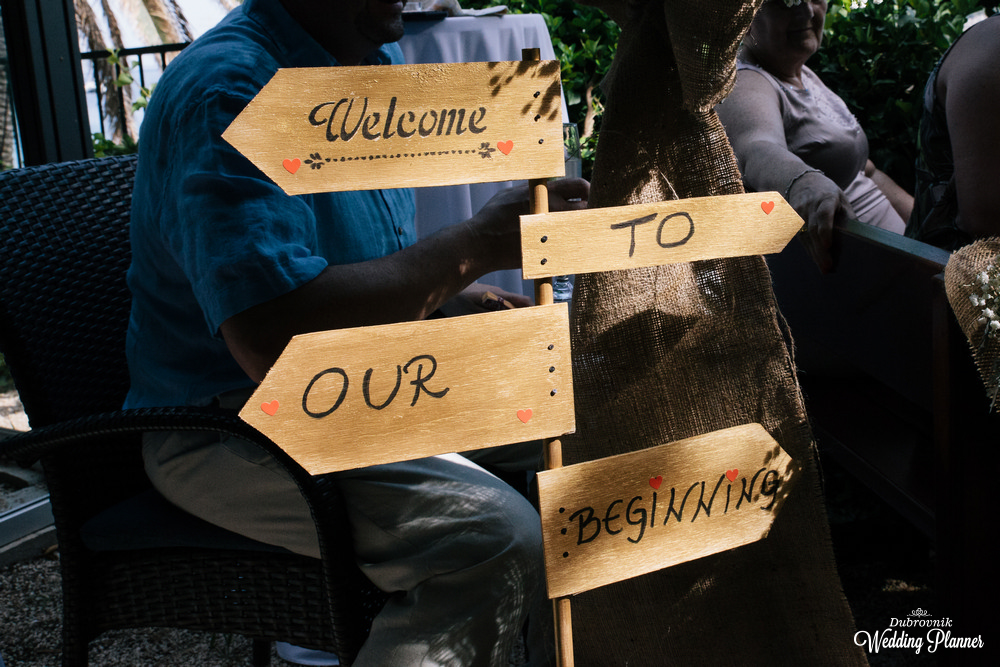 Welcome
TO
OUR
BEGINNING
Dubrovnik
Wedding Planner